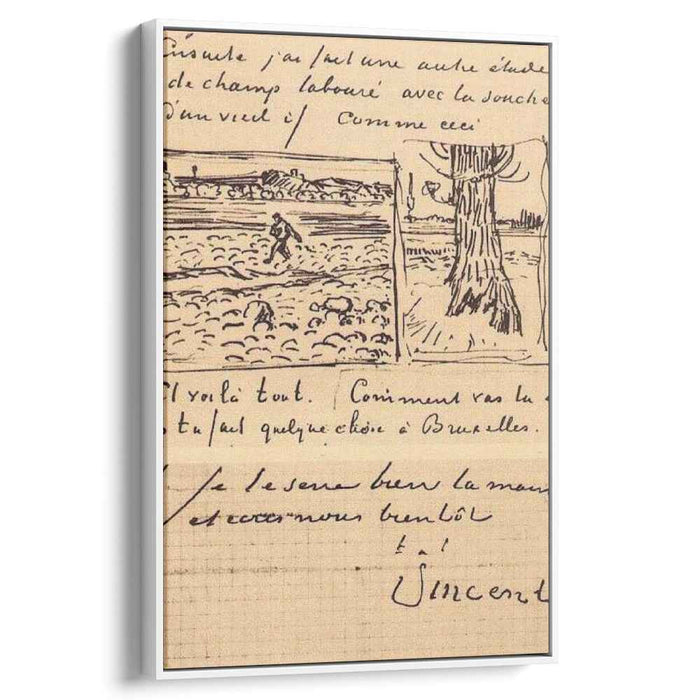 Ensuite j'ai fait une autre étude
de champ labouré avec la souche
d'un vieil if Comme ceci
Et voilà tout. Comment vas tu
tu fait quelque chose à Bruxelles.
Je te serre bien la main
et nous bientôt
t. t
Vincent